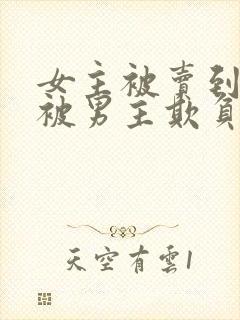 女主被賣到
被男主欺負
天空有雲1